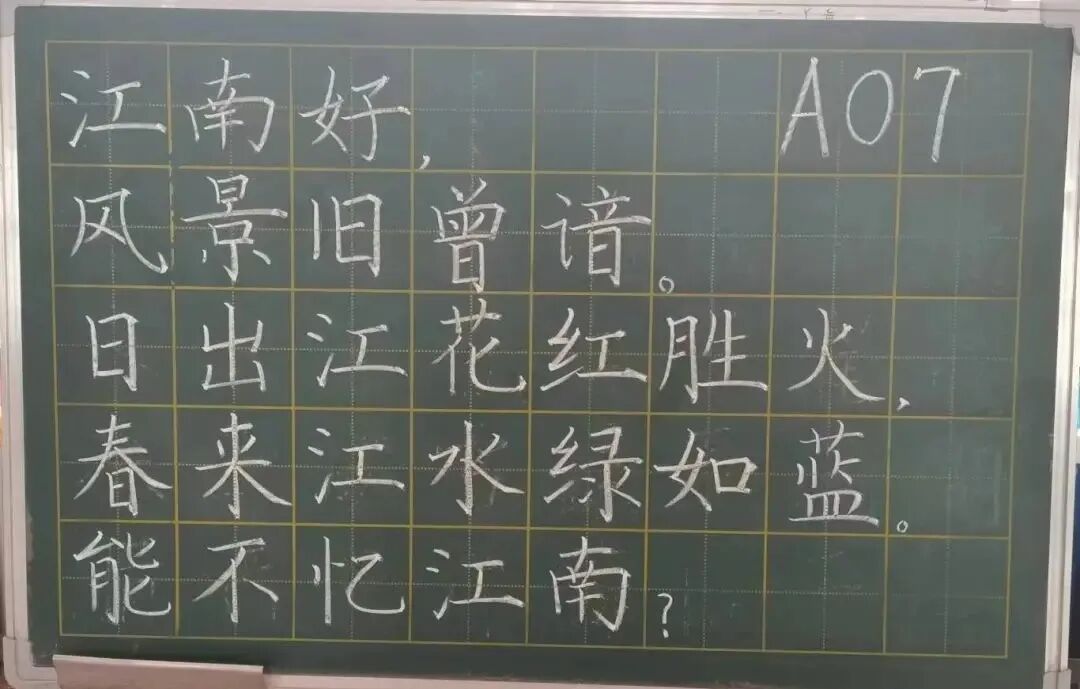 江南好， A07
风景旧曾谙。
日出江花红胜火，
春来江水绿如蓝。
能不忆江南？